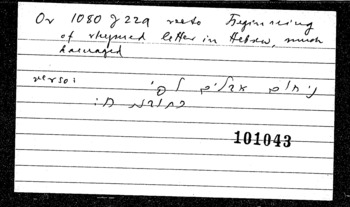 Or 1080 J 229 recto Beginning
of rhymed letter in Hebrew, much
damaged
verso:
ניחום אבלים לפי
101043